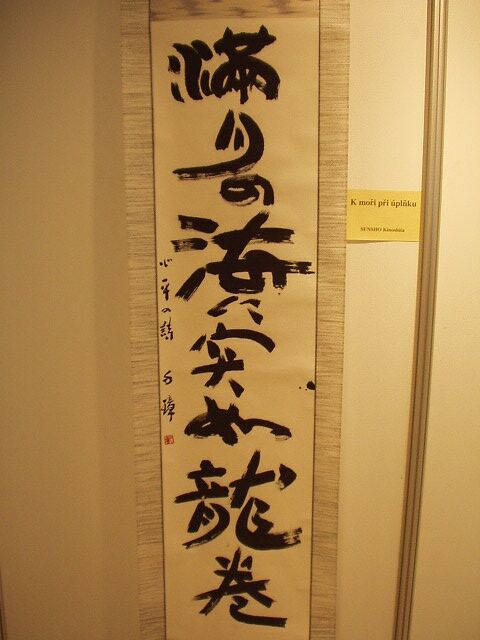 満月の海に突如龍巻
心平の詩 千璋
K moři při úplňku
SENSHO Kinoshita